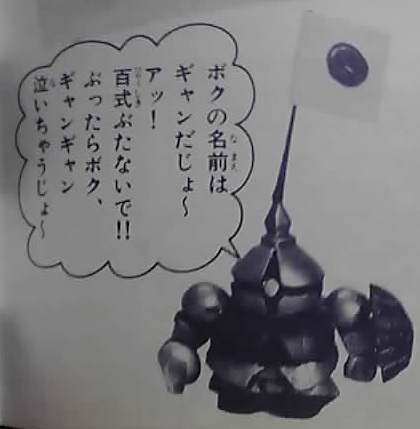 ボクの名前は
ギャンだじょ〜
アッ！
百式ぶたないで!!
ぶったらボク、
ギャンギャン
泣いちゃうじょ〜